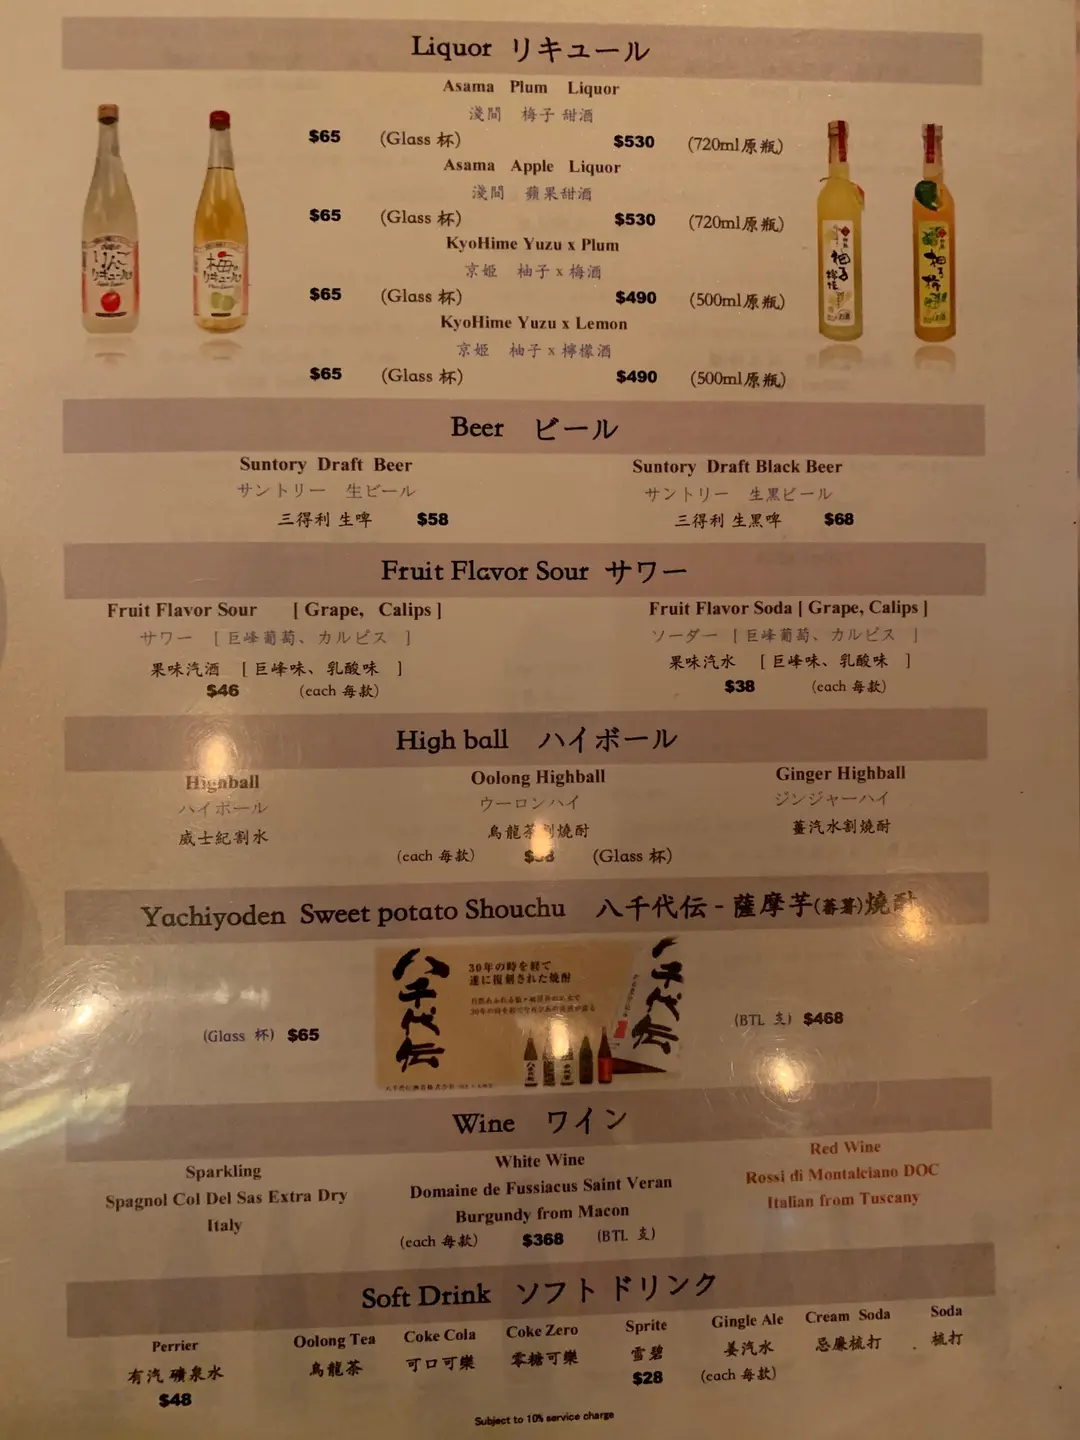 Liquor リキュール
Asama Plum Liquor
淺間 梅子甜酒
$65 (Glass 杯) $530 (720ml原瓶)
Asama Apple Liquor
淺間 蘋果甜酒
$65 (Glass 杯) $530 (720ml原瓶)
KyoHime Yuzu x Plum
京姬 柚子 x 梅酒
$65 (Glass 杯) $490 (500ml原瓶)
KyoHime Yuzu x Lemon
京姬 柚子 x 檸檬酒
$65 (Glass 杯) $490 (500ml原瓶)
りんご
リキュール
梅の
リキュール
Beer ビール
Suntory Draft Beer
サントリー 生ビール
三得利 生啤 $58
Suntory Draft Black Beer
サントリー 生黒ビール
三得利 生黑啤 $68
Fruit Flavor Sour サワー
Fruit Flavor Sour [ Grape, Calips ]
サワー [ 巨峰葡萄、カルピス ]
果味汽酒 [ 巨峰味、乳酸味 ]
$46 (each 每款)
Fruit Flavor Soda [ Grape, Calips ]
ソーダー [ 巨峰葡萄、カルピス ]
果味汽水 [ 巨峰味、乳酸味 ]
$38 (each 每款)
High ball ハイボール
Highball
ハイボール
威士紀割水
Oolong Highball
ウーロンハイ
烏龍茶割燒酎
Ginger Highball
ジンジャーハイ
薑汽水割燒酎
(each 每款) (Glass 杯)
Yachiyoden Sweet potato Shouchu 八千代伝 - 薩摩芋(蕃薯)燒酎
八千代伝
30年の時を経て
遂に復刻された焼酎
八千代伝
(Glass 杯) $65
(BTL 支) $468
Wine ワイン
Sparkling
Spagnol Col Del Sas Extra Dry
Italy
White Wine
Domaine de Fussiacus Saint Veran
Burgundy from Macon
Red Wine
Rossi di Montalciano DOC
Italian from Tuscany
(each 每款) $368 (BTL 支)
Soft Drink ソフトドリンク
Perrier
有汽礦泉水
$48
Oolong Tea
烏龍茶
Coke Cola
可口可樂
Coke Zero
零糖可樂
Sprite
雪碧
$28
Gingle Ale
姜汽水
(each 每款)
Cream Soda
忌廉梳打
Soda
梳打
Subject to 10% service charge